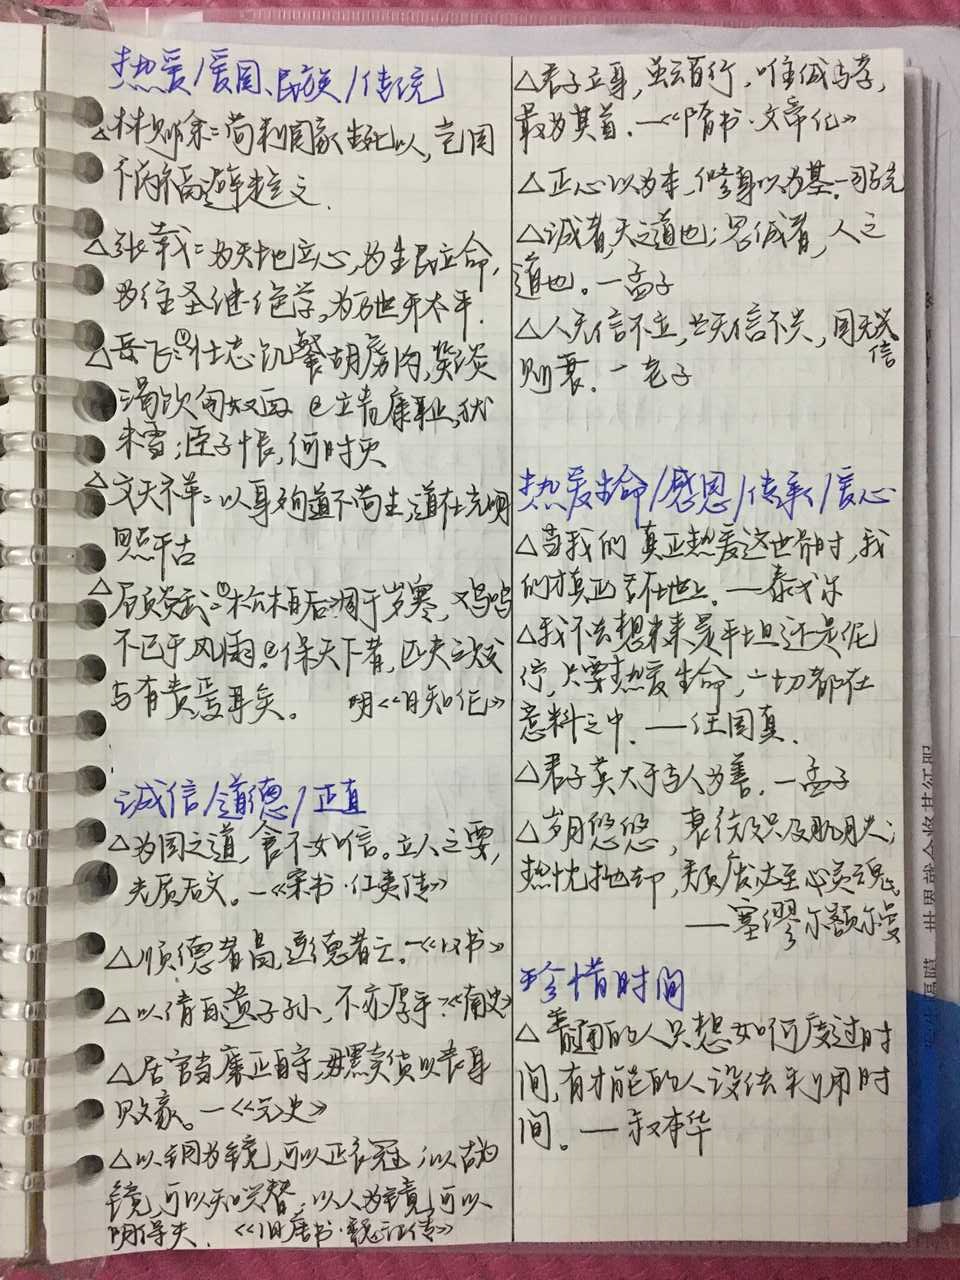 热爱/爱国、民族/传统
△林则徐：苟利国家生死以，岂因
不为祸福避趋之义.
△张载：为天地立心,为生民立命,
为往圣继绝学,为万世开太平.
△岳飞：①壮志饥餐胡虏肉,笑谈
渴饮匈奴血 ②立靖康耻,犹
未雪;臣子恨,何时灭
△文天祥：以身殉道不苟生,道在光明
照千古
△顾炎武：①松柏后凋于岁寒，鸡鸣
不已于风雨。②保天下者，匹夫之贱
与有责焉耳矣。 明《日知录》
诚信/道德/正直
△为国之道，食不如信。立人之要，
先质后文。—《宋书·仁夷传》
△顺德者昌,逆德者亡。—《汉书》
△以清白遗子孙、不亦厚乎?《南史》
△居官当廉正自守,毋黩货以丧身
败家。—《元史》
△以铜为镜,可以正衣冠;以古为
镜,可以知兴替;以人为镜,可以
明得失. 《旧唐书·魏征传》
△君子立身，虽云百行，唯诚与孝,
最为其首.—《隋书·文帝纪》
△正心以为本,修身以为基.—司马光
△诚者,天之道也;思诚者,人之
道也。—孟子
△人无信不立,业无信不兴,国无信
则衰.—老子
热爱生命/感恩/传承/信心
△当我们真正热爱这世界时,我
们才真正活在地上.—泰戈尔
△我不去想未来是平坦还是泥
泞,只要热爱生命,一切都在
意料之中.——汪国真.
△君子莫大于与人为善.—孟子
△岁月悠悠,衰微只及肌肤;
热忱抛却,颓废必至心灵魂
——塞缪尔额尔曼
珍惜时间
△普通的人只想如何度过时
间,有才能的人设法利用时
间。—叔本华